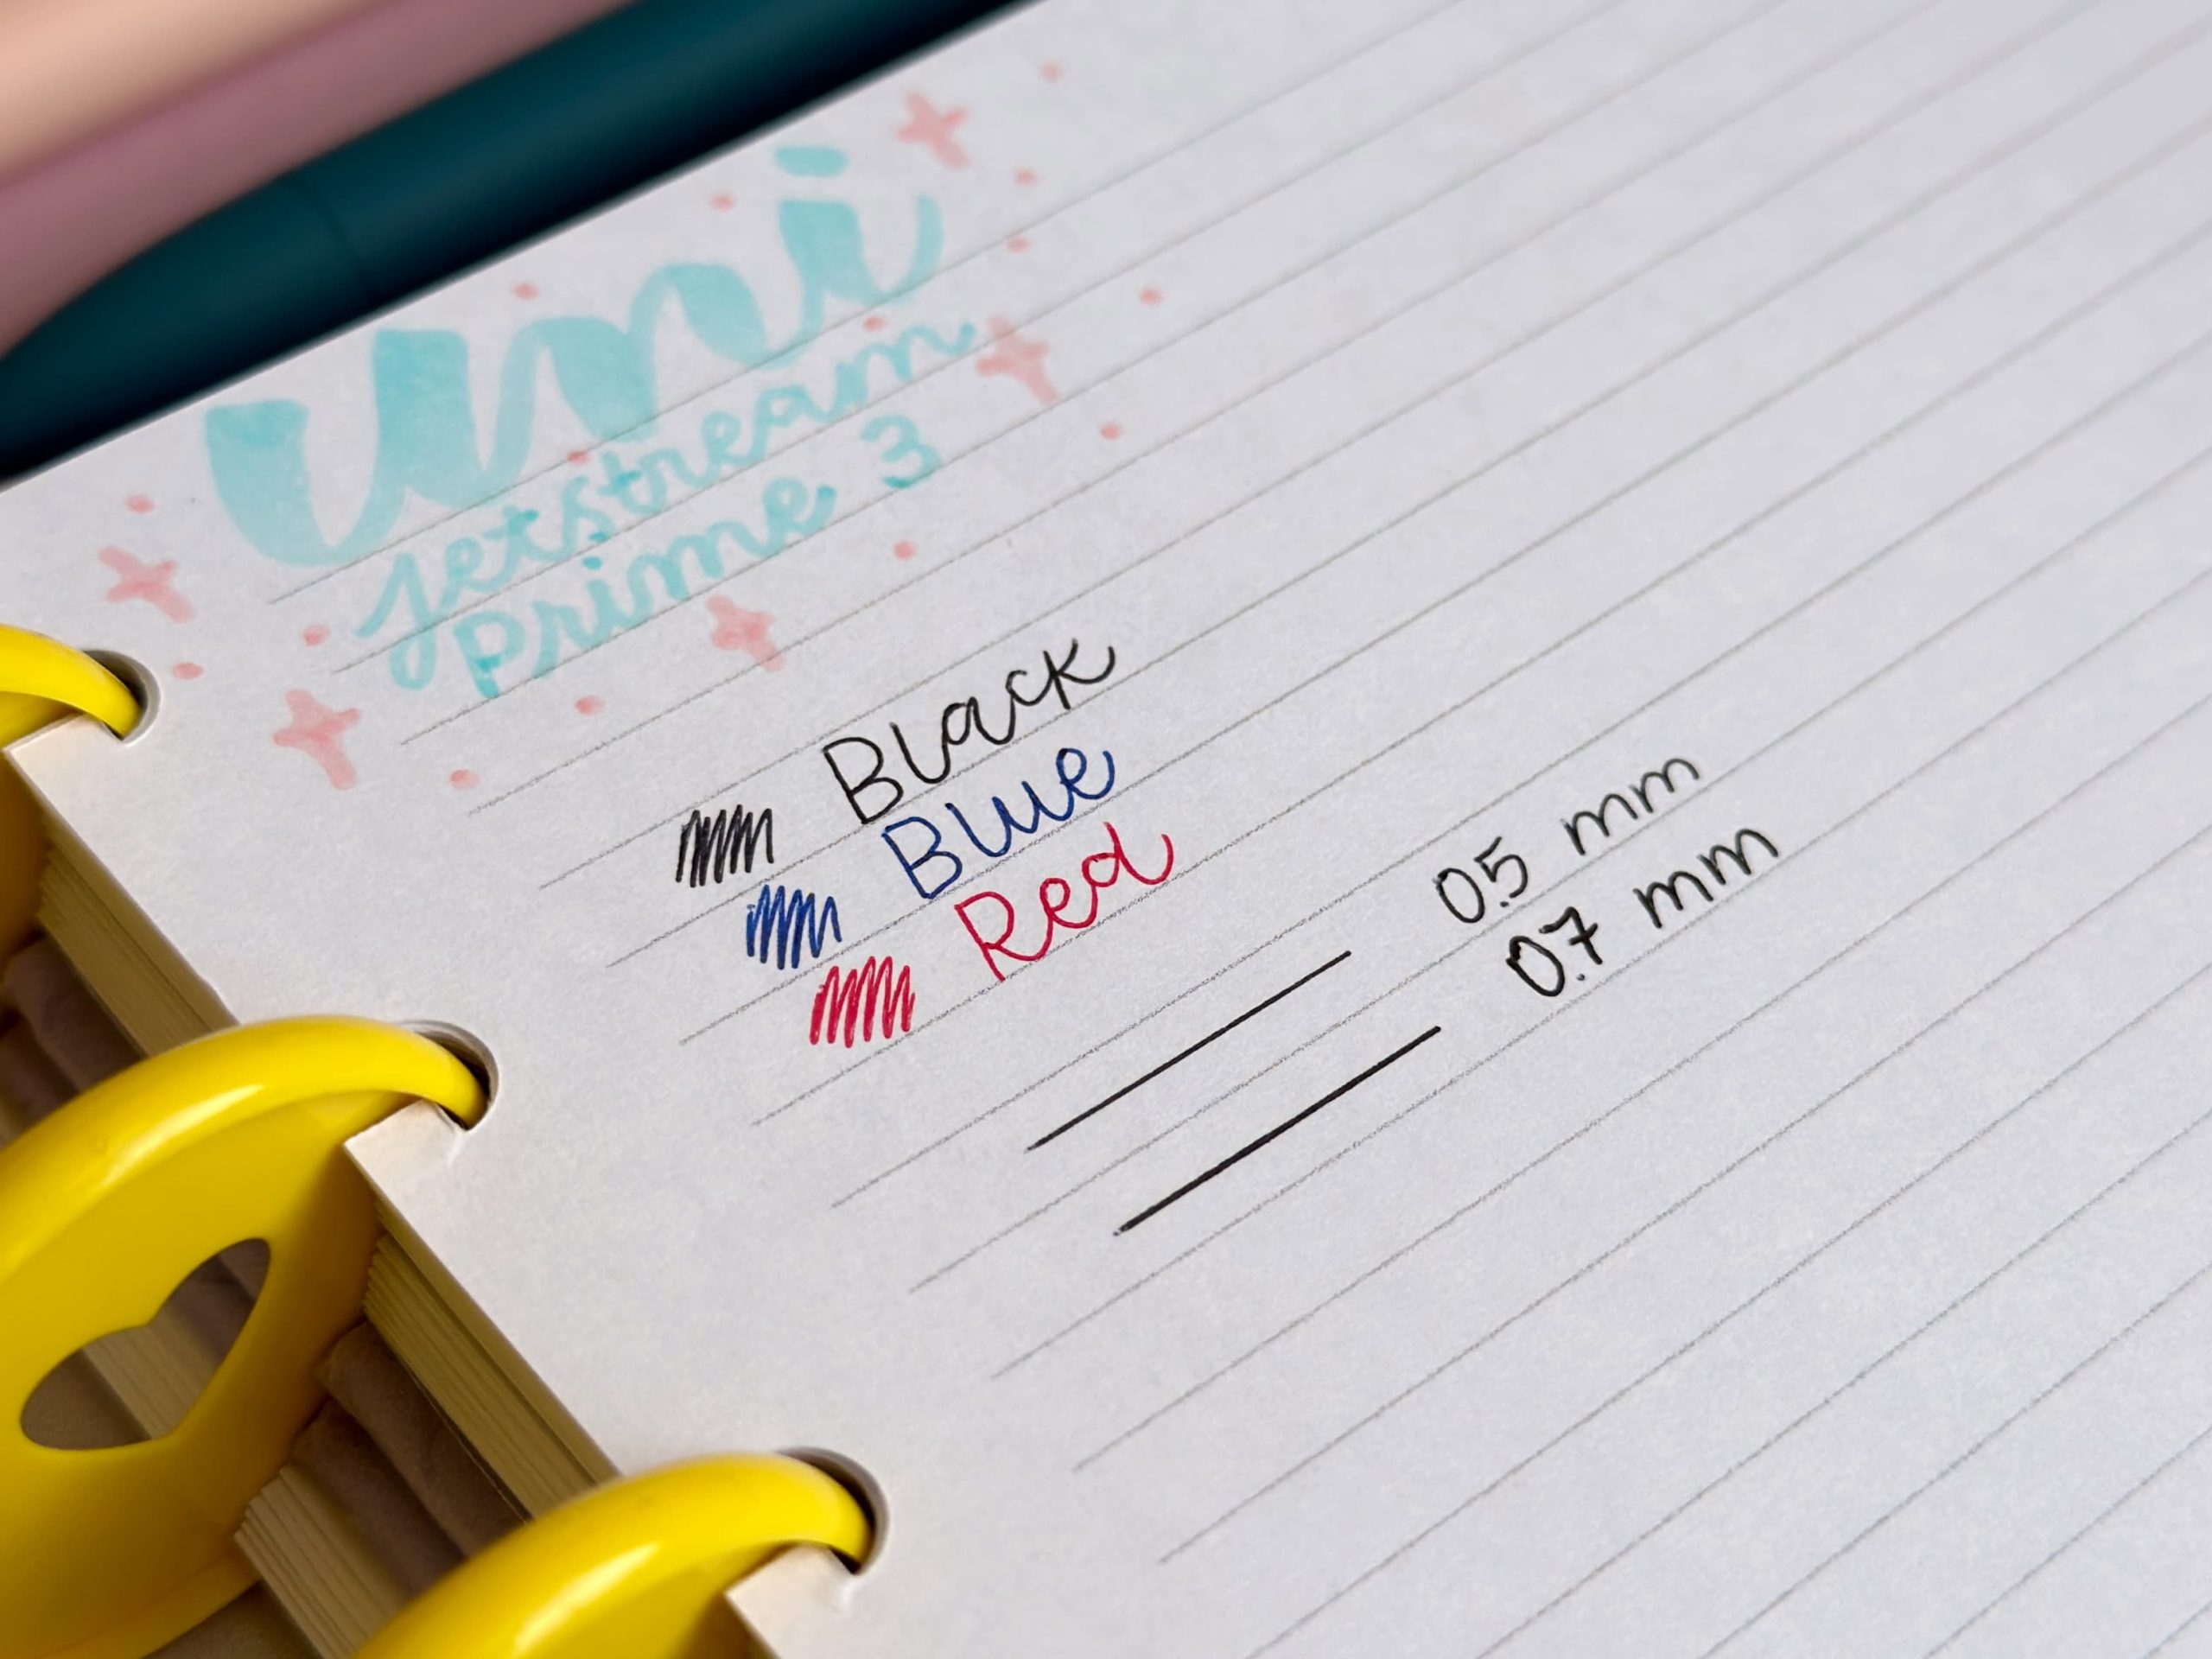 uni
jetstream
prime 3
Black
Blue
Red
0.5 mm
0.7 mm